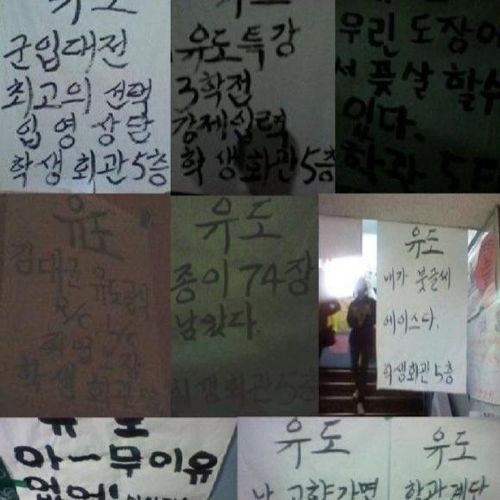 유도
군입대전
최고의 선택
입영상담
학생회관5층
유도
유도특강
3학점
강제입력
학생회관5층
우린 도장에
서 풋살 할수
있다.
학관 5F
유도
김대근
학생
유도
종이 74장
남았다.
학생회관5층
유도
내가 붓글씨
에이스다.
학생회관 5층
유도
아-무이유
없어!
유도
난 고향가면
유도
학과계단